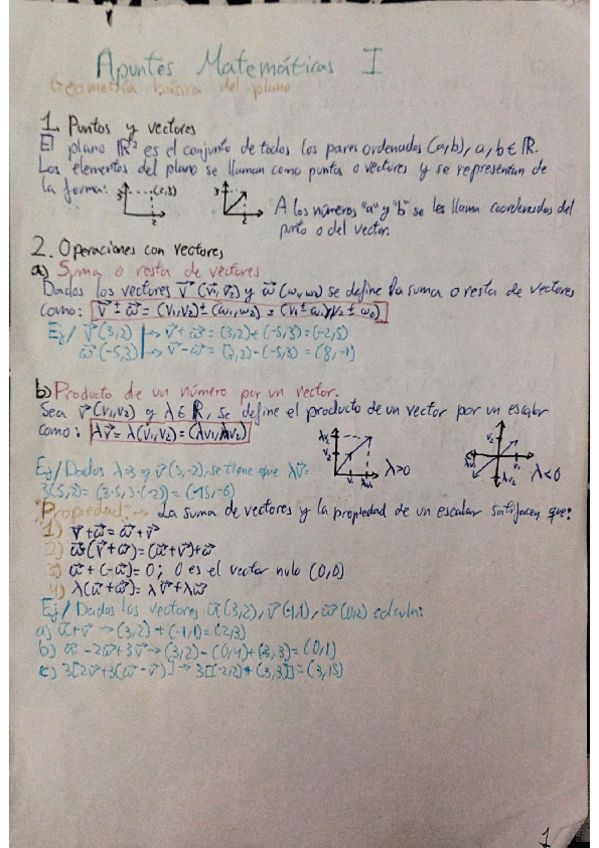 Apuntes Matemáticas I
Geometría básica del plano
1. Puntos y vectores
El plano ℝ² es el conjunto de todos los pares ordenados (a,b), a, b ∈ ℝ.
Los elementos del plano se llaman como puntos o vectores y se representan de
la forma:
3 (2,3) 2
3 2
A los números "a" y "b" se les llama coordenadas del
punto o del vector.
2. Operaciones con vectores
a) Suma o resta de vectores
Dados los vectores v⃗ (v₁,v₂) y ω⃗ (ω₁,ω₂) se define la suma o resta de vectores
como: v⃗ ± ω⃗ = (v₁,v₂) ± (ω₁,ω₂) = (v₁ ± ω₁, v₂ ± ω₂)
Ej/ v⃗ (3,2) → v⃗ + ω⃗ = (3,2)+(-5,3)=(-2,5)
ω⃗ (-5,3) → v⃗ - ω⃗ = (3,2) - (-5,3) = (8,-1)
b) Producto de un número por un vector.
Sea v⃗ (v₁,v₂) y λ ∈ ℝ, se define el producto de un vector por un escalar
como: λv⃗ = λ(v₁,v₂) = (λv₁, λv₂)
λv₂ v₂ v₁ λv₁ λ>0
v₂ λv₁ v₁ λv₂ λ<0
Ej/ Dados λ=3 y v⃗ (5,-2), se tiene que λv⃗=
3(5,2)= (3·5, 3·(-2)) = (-15,-6)
Propiedad: → La suma de vectores y la propiedad de un escalar satisfacen que:
1) v⃗+ω⃗ = ω⃗+v⃗
2) ω⃗(v⃗+ω⃗) = (ω⃗+v⃗)+ω⃗
3) ω⃗ + (-ω⃗) = 0; 0 es el vector nulo (0,0)
4) λ(u⃗+ω⃗) = λv⃗+λω⃗
Ej/ Dados los vectores u⃗(3,2), v⃗(-1,1), ω⃗(0,2) calcula:
a) u⃗+v⃗ → (3,2) + (-1,1)=(2,3)
b) u⃗ - 2ω⃗+3v⃗ → (3,2) - (0,4)+(-3,3)=(0,1)
c) 3[2v⃗+3(ω⃗-v⃗)] → 3[(-2,2)+(3,3)] = (3,15)
1